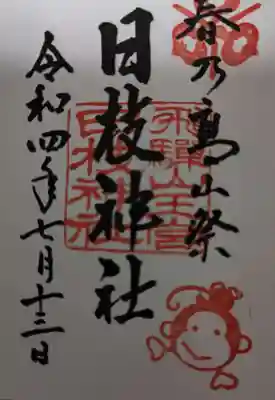 春乃高山祭
日枝神社
飛騨山王宮
日枝神社
令和四年七月十三日